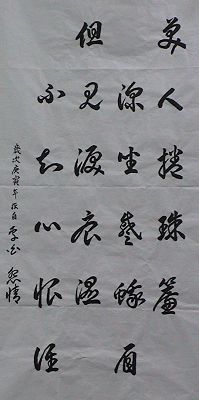 美人捲珠簾
深坐蹙蛾眉
但見淚痕湿
不知心恨誰
歲次庚寅年 李白 怨情